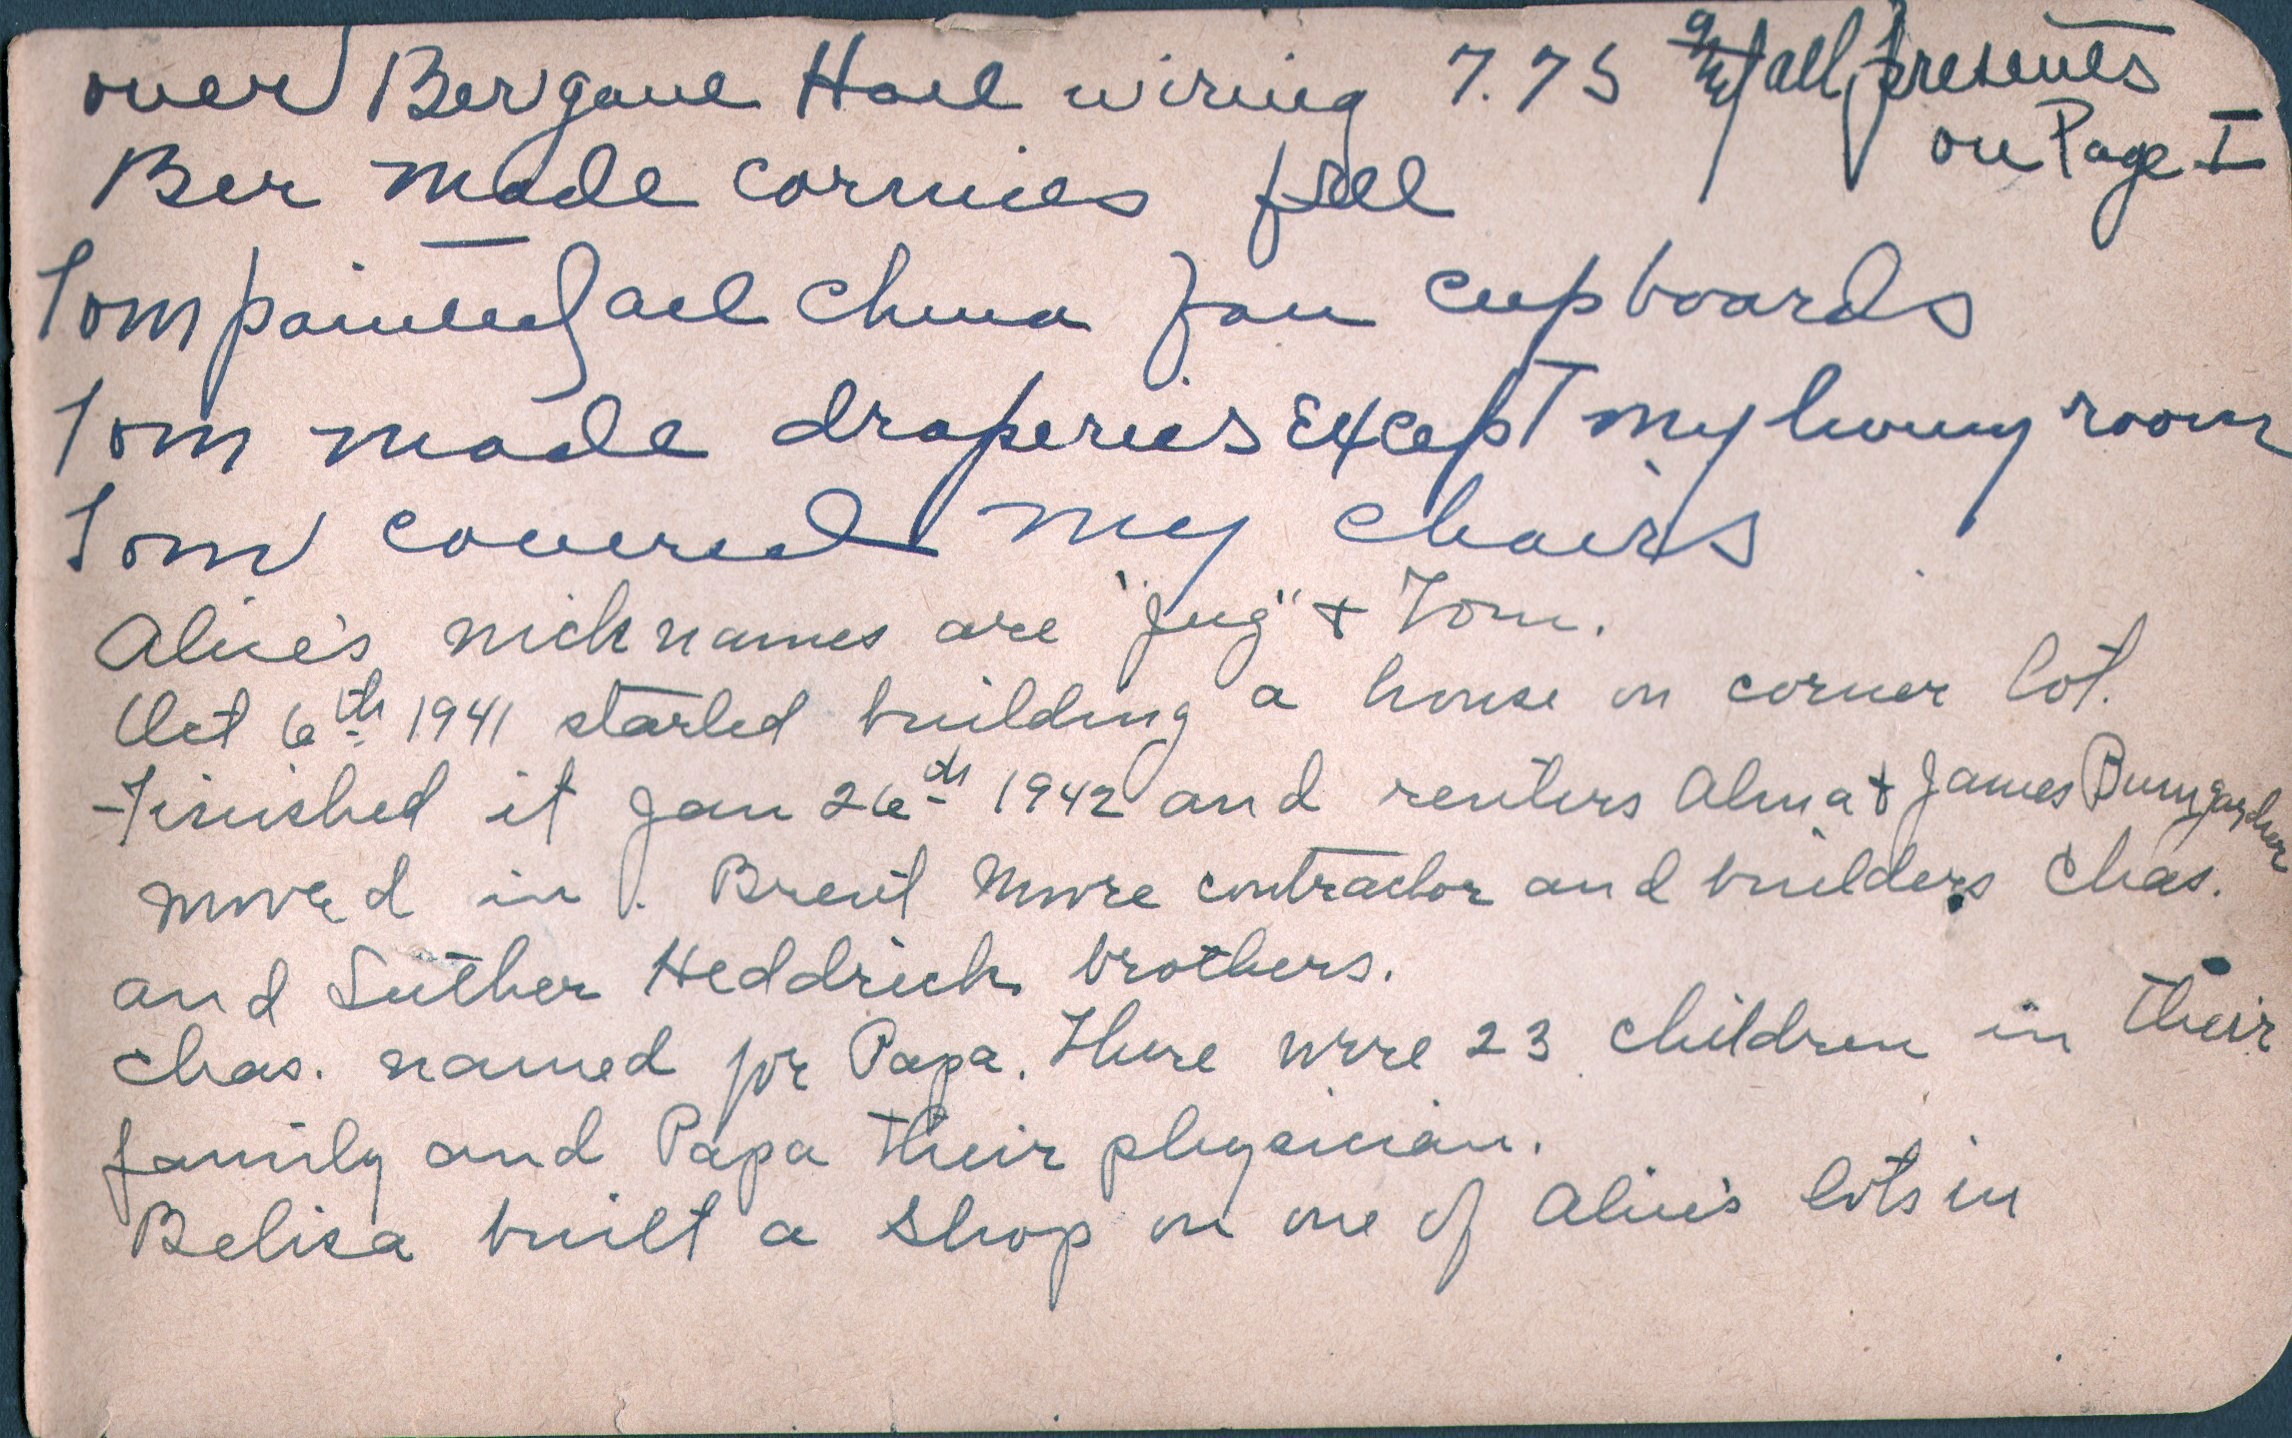 over Ber gave Hall wiring 7.75 all presents
on Page I
Ber made cornices free
Tom painted all china cupboards
Tom made draperies Except my living room
Tom covered my chairs
Alice's nicknames are "Jug" + Tom.
Oct 6th 1941 started building a house on corner lot.
Finished it Jan 26th 1942 and renters Alma + James Bumgardner
moved in. Brent Moore contractor and builders Chas.
and Luther Heddrick brothers.
Chas. named for Papa. There were 23 children in their
family and Papa their physician.
Belisa built a shop on one of Alice's lots in